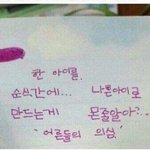 한 아이를.
순식간에... 나쁜아이로
만드는게 몬줄알아?..
'어른들의 의심'